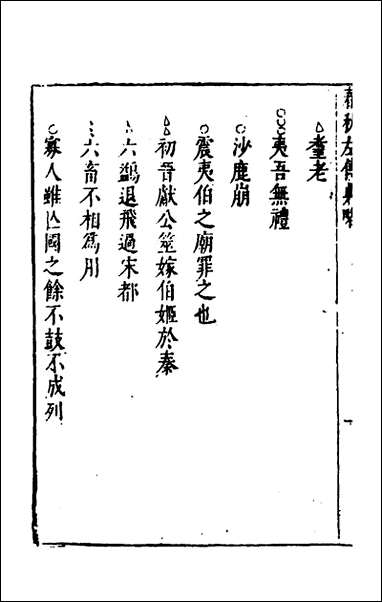 春秋左傳
△耋老
○○○夷吾無禮
沙鹿崩
○震夷伯之廟罪之也
△△初晉獻公筮嫁伯姬於秦
△六鷁退飛過宋都
ミ六畜不相爲用
○寡人雖亡國之餘不鼓不成列